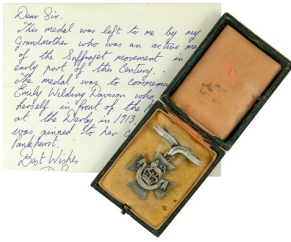 Dear Sir.
This medal was left to me by my
Grandmother who was an active me
of the Suffrajet movement in
early part of this Century.
The medal was to commema
Emily Wilding Davison who
herself in front of the
at the Derby in 1913.
was pinned to her c
Pankhurst.
Best Wishes